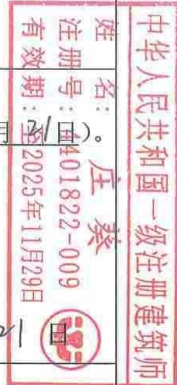 中华人民共和国一级注册建筑师
姓 名：庄葵
注册号：4401822-009
有效期：至2025年11月29日
月21日）。
21 日